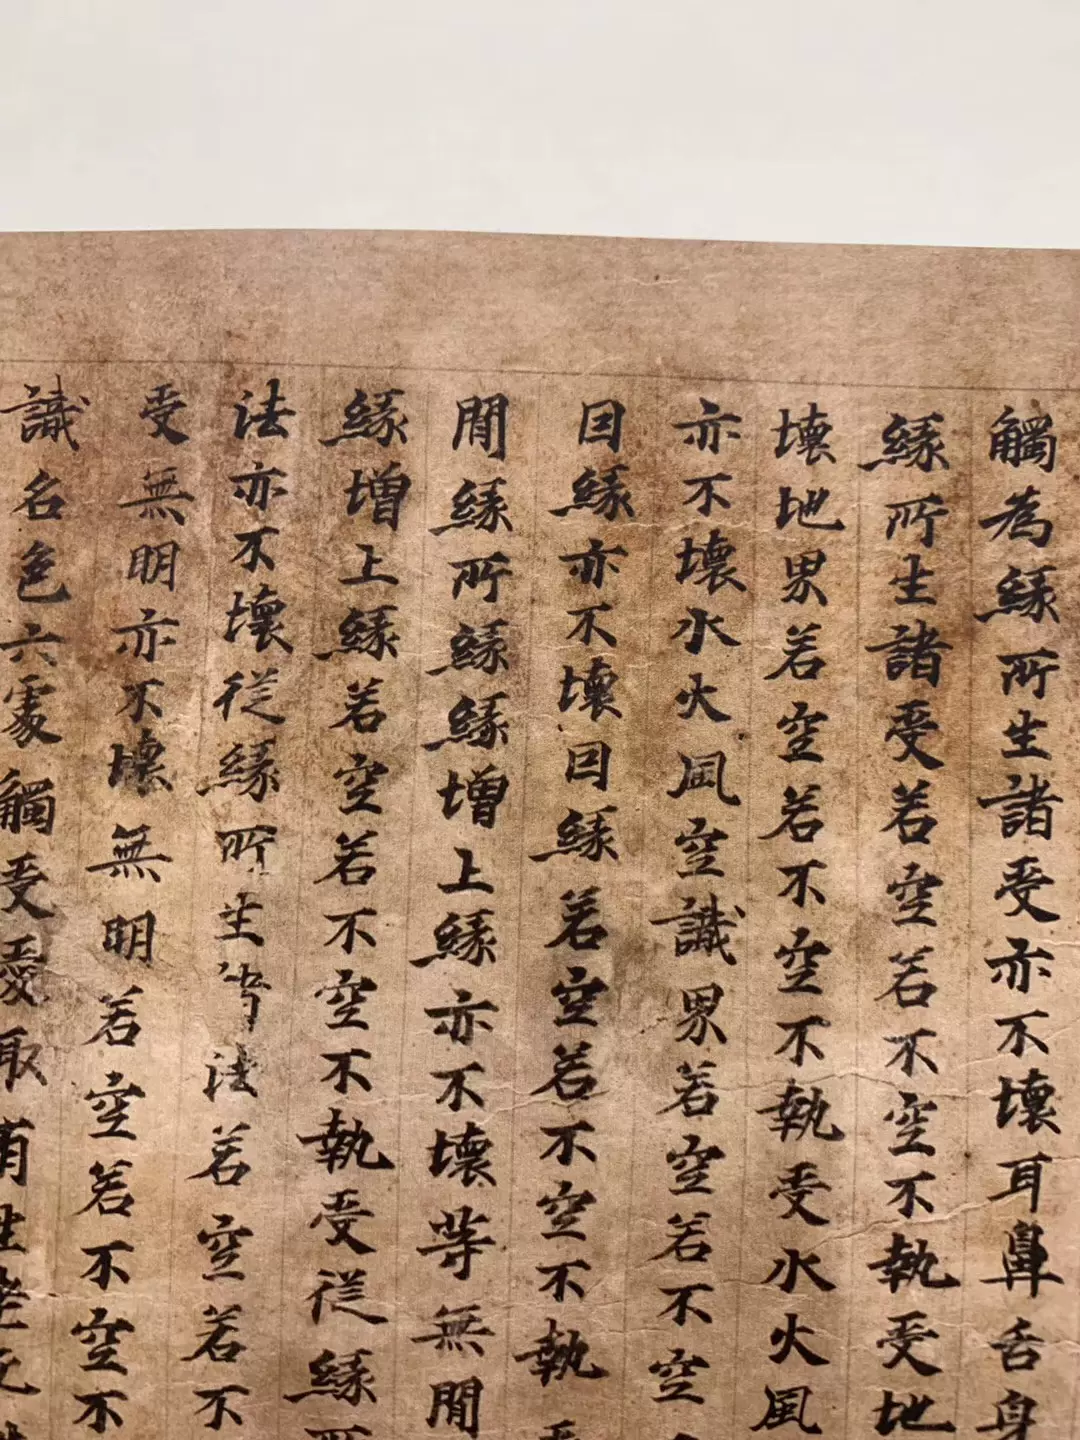 觸為緣所生諸受亦不壞耳鼻舌身
緣所生諸受若空若不空不執受地
壞地界若空若不空不執受水火風
亦不壞水火風空識界若空若不空
因緣亦不壞因緣若空若不空不執
閒緣所緣緣增上緣亦不壞等無閒
緣增上緣若空若不空不執受從緣所
法亦不壞從緣所生諸法若空若不
受無明亦不壞無明若空若不空不
識名色六處觸受愛取有生老死